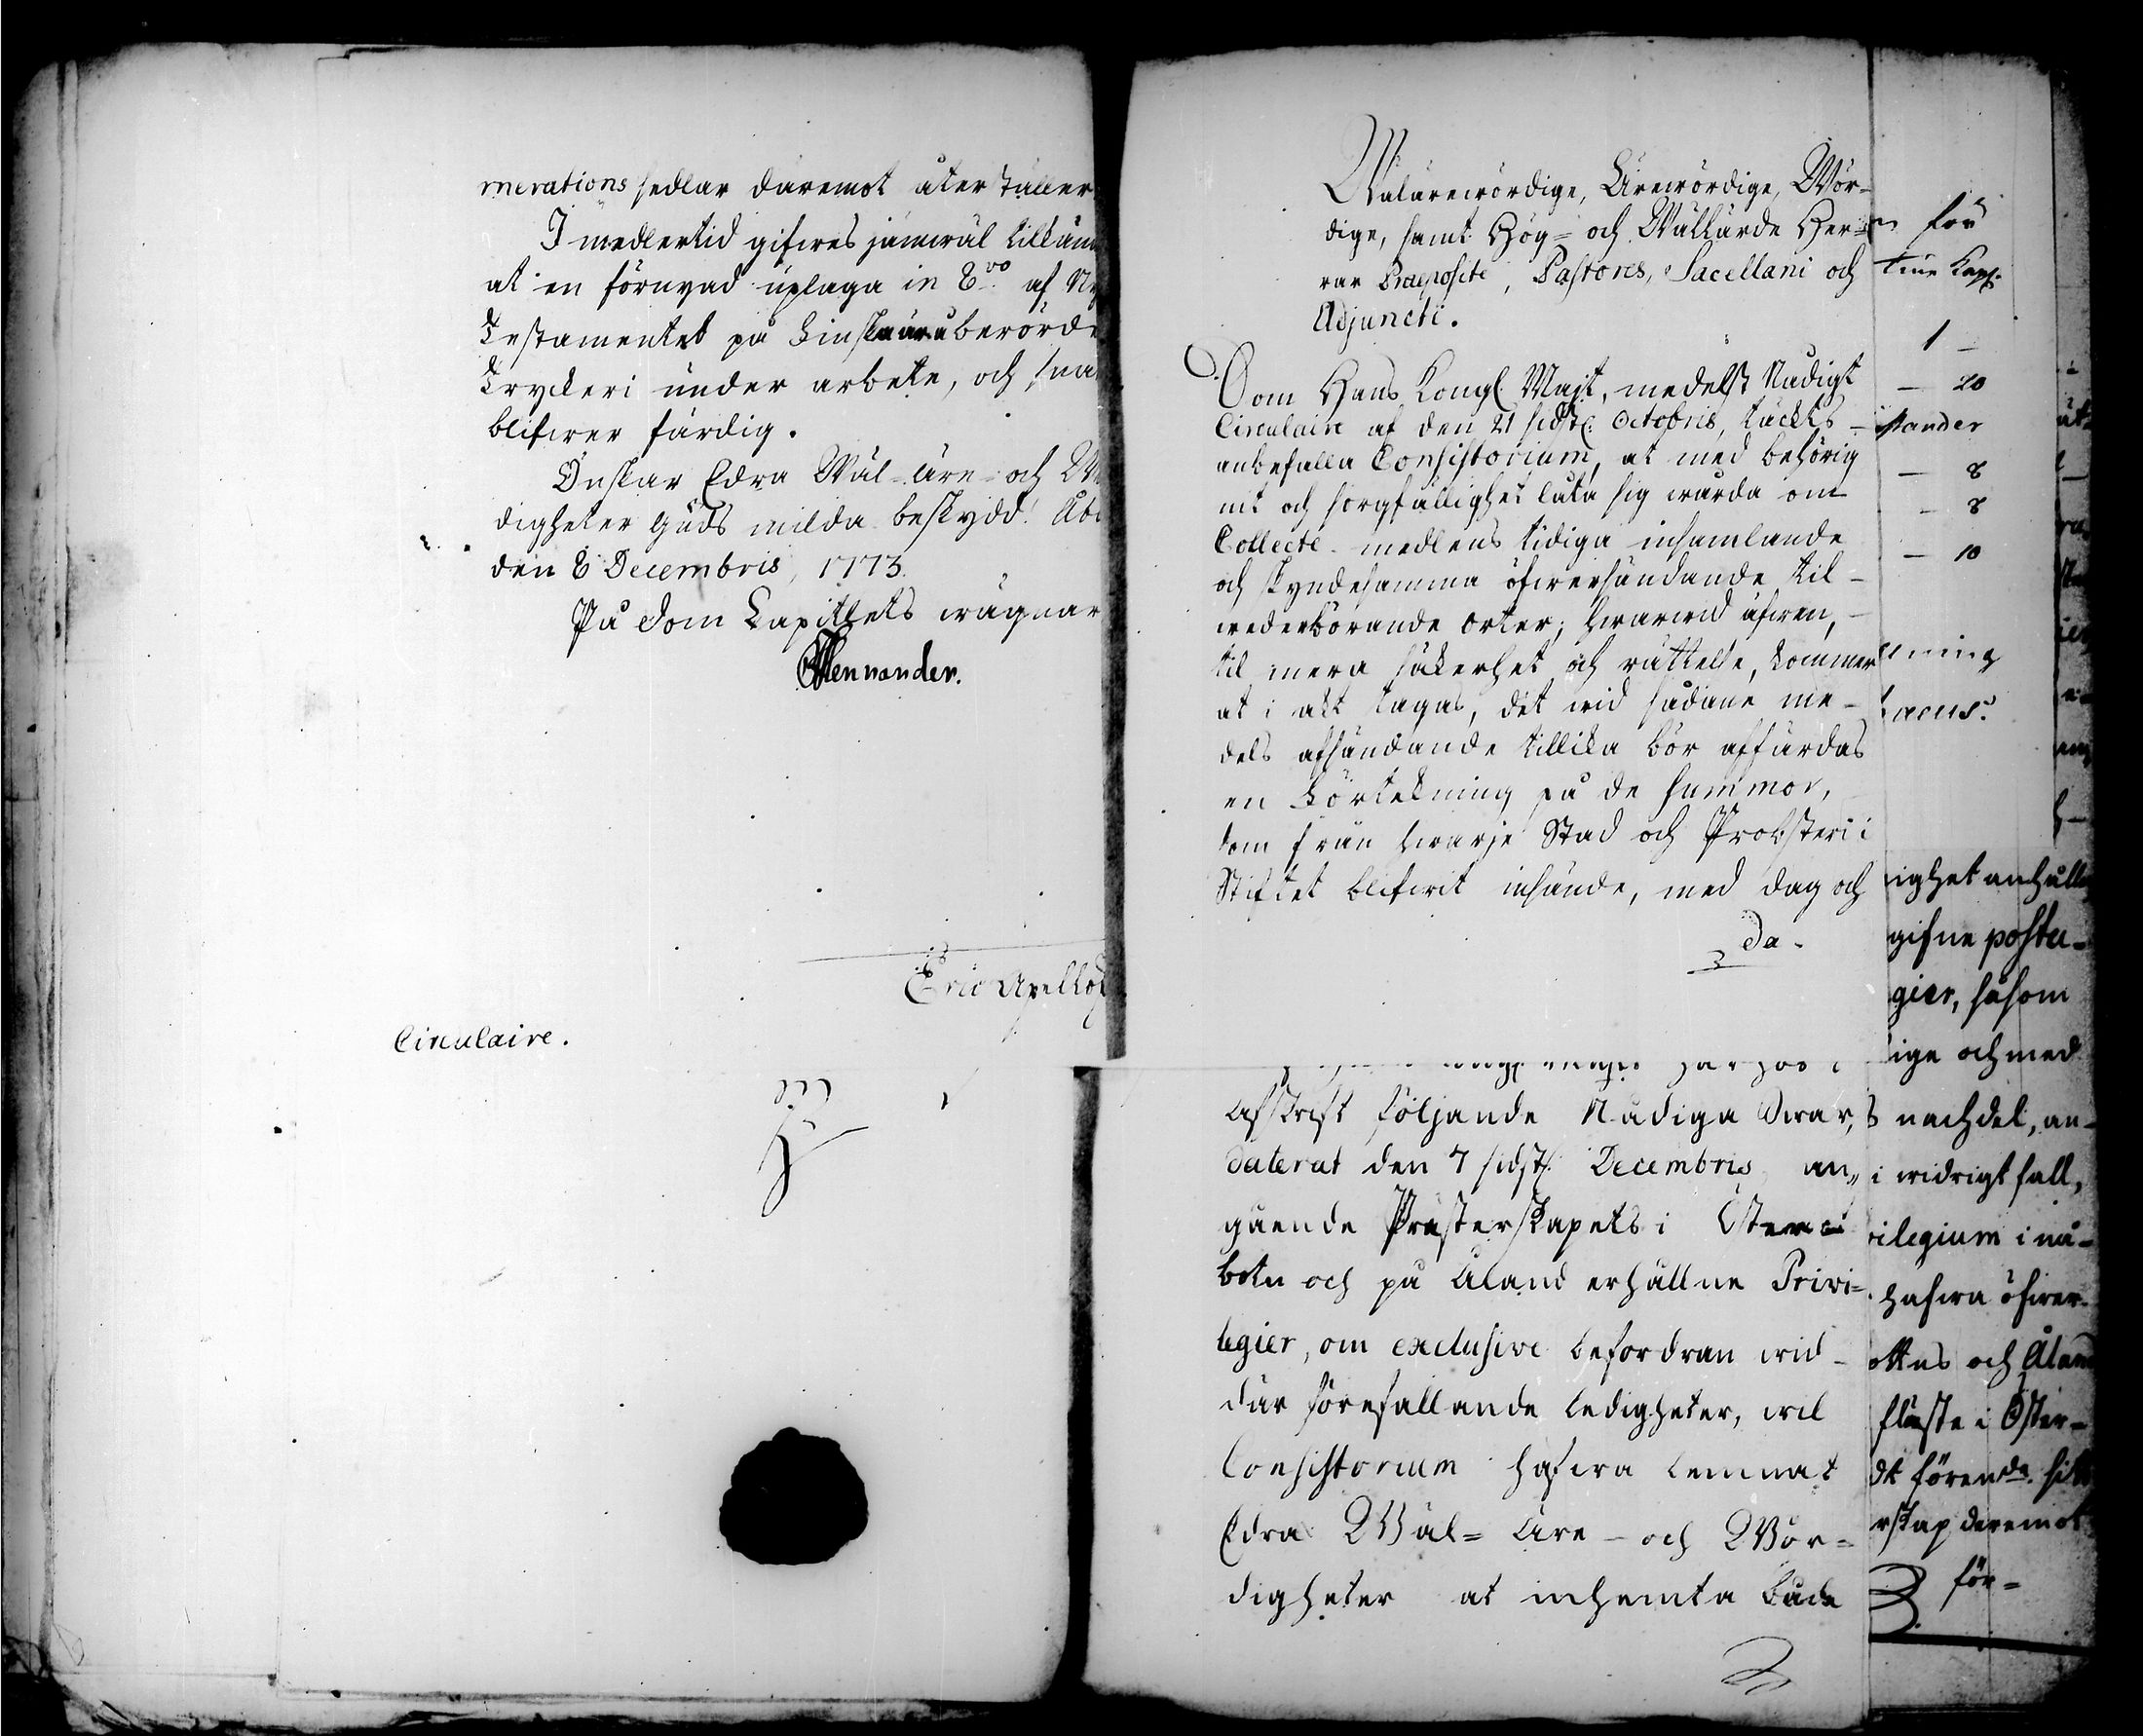 merations sedlar däremot återställer
I medlertid gifwes jämwäl tillkän
at en förnyad uplaga in 8vo af Ny
Testamentet på Finska är u berörde
Tryckeri under arbete, och snar
blifwer färdig.
Önskar Edra Wäl-äre- och W
digheter Guds milda beskydd. Åbo
den 8 Decembris, 1773.
På Dom Capitlets wägnar
Mennander.
Eric Apellof
Circulaire.
Wälärewördige, Ärewördige, Wör-
dige, samt Hög- och Wällärde Her-
rar Praeposite, Pastores, Sacellani och
Adjuncti.
Som Hans Kongl. Majt, medelst Nådigt
Circulaire af den 21 sidstl. Octobris, täckts
anbefalla Consistorium, at med behörig
nit och sorgfällighet låta sig wårda om
Collecte-medlens tidiga insamlande
och skyndesamma öfwersändande til
wederbörande orter; hwarwid äfwen,
til mera säkerhet och rättelse, kommer
at i akt tagas, det wid sådane me-
dels afsändande tillika bör affärdas
en Förtekning på de summor,
som från hwarje Stad och Probsteri i
Stiftet blifwit insände, med dag och
da-
Afskrift följande Nådiga Swar,
daterat den 7 sidstl. Decembris, an-
gående Prästerskapets i Öster-
botn och på Åland erhållne Privi-
legier, om exclusive befordran wid
där förefallande ledigheter, wil
Consistorium hafwa lemnat
Edra Wäl- Äre- och Wör-
digheter at inhemta både
för
tine Kap.
1 -
- 20
stander
- 8
- 8
- 10
ning
acus.
ighet anhålle
gifne postu-
gier, såsom
ige och med
s nachdel, an-
i widrigt fall,
ilegium i nå-
hafwa öfwer-
ottns och Åland
fläste i Öster-
dt förende sitt
rskap deremot
för-